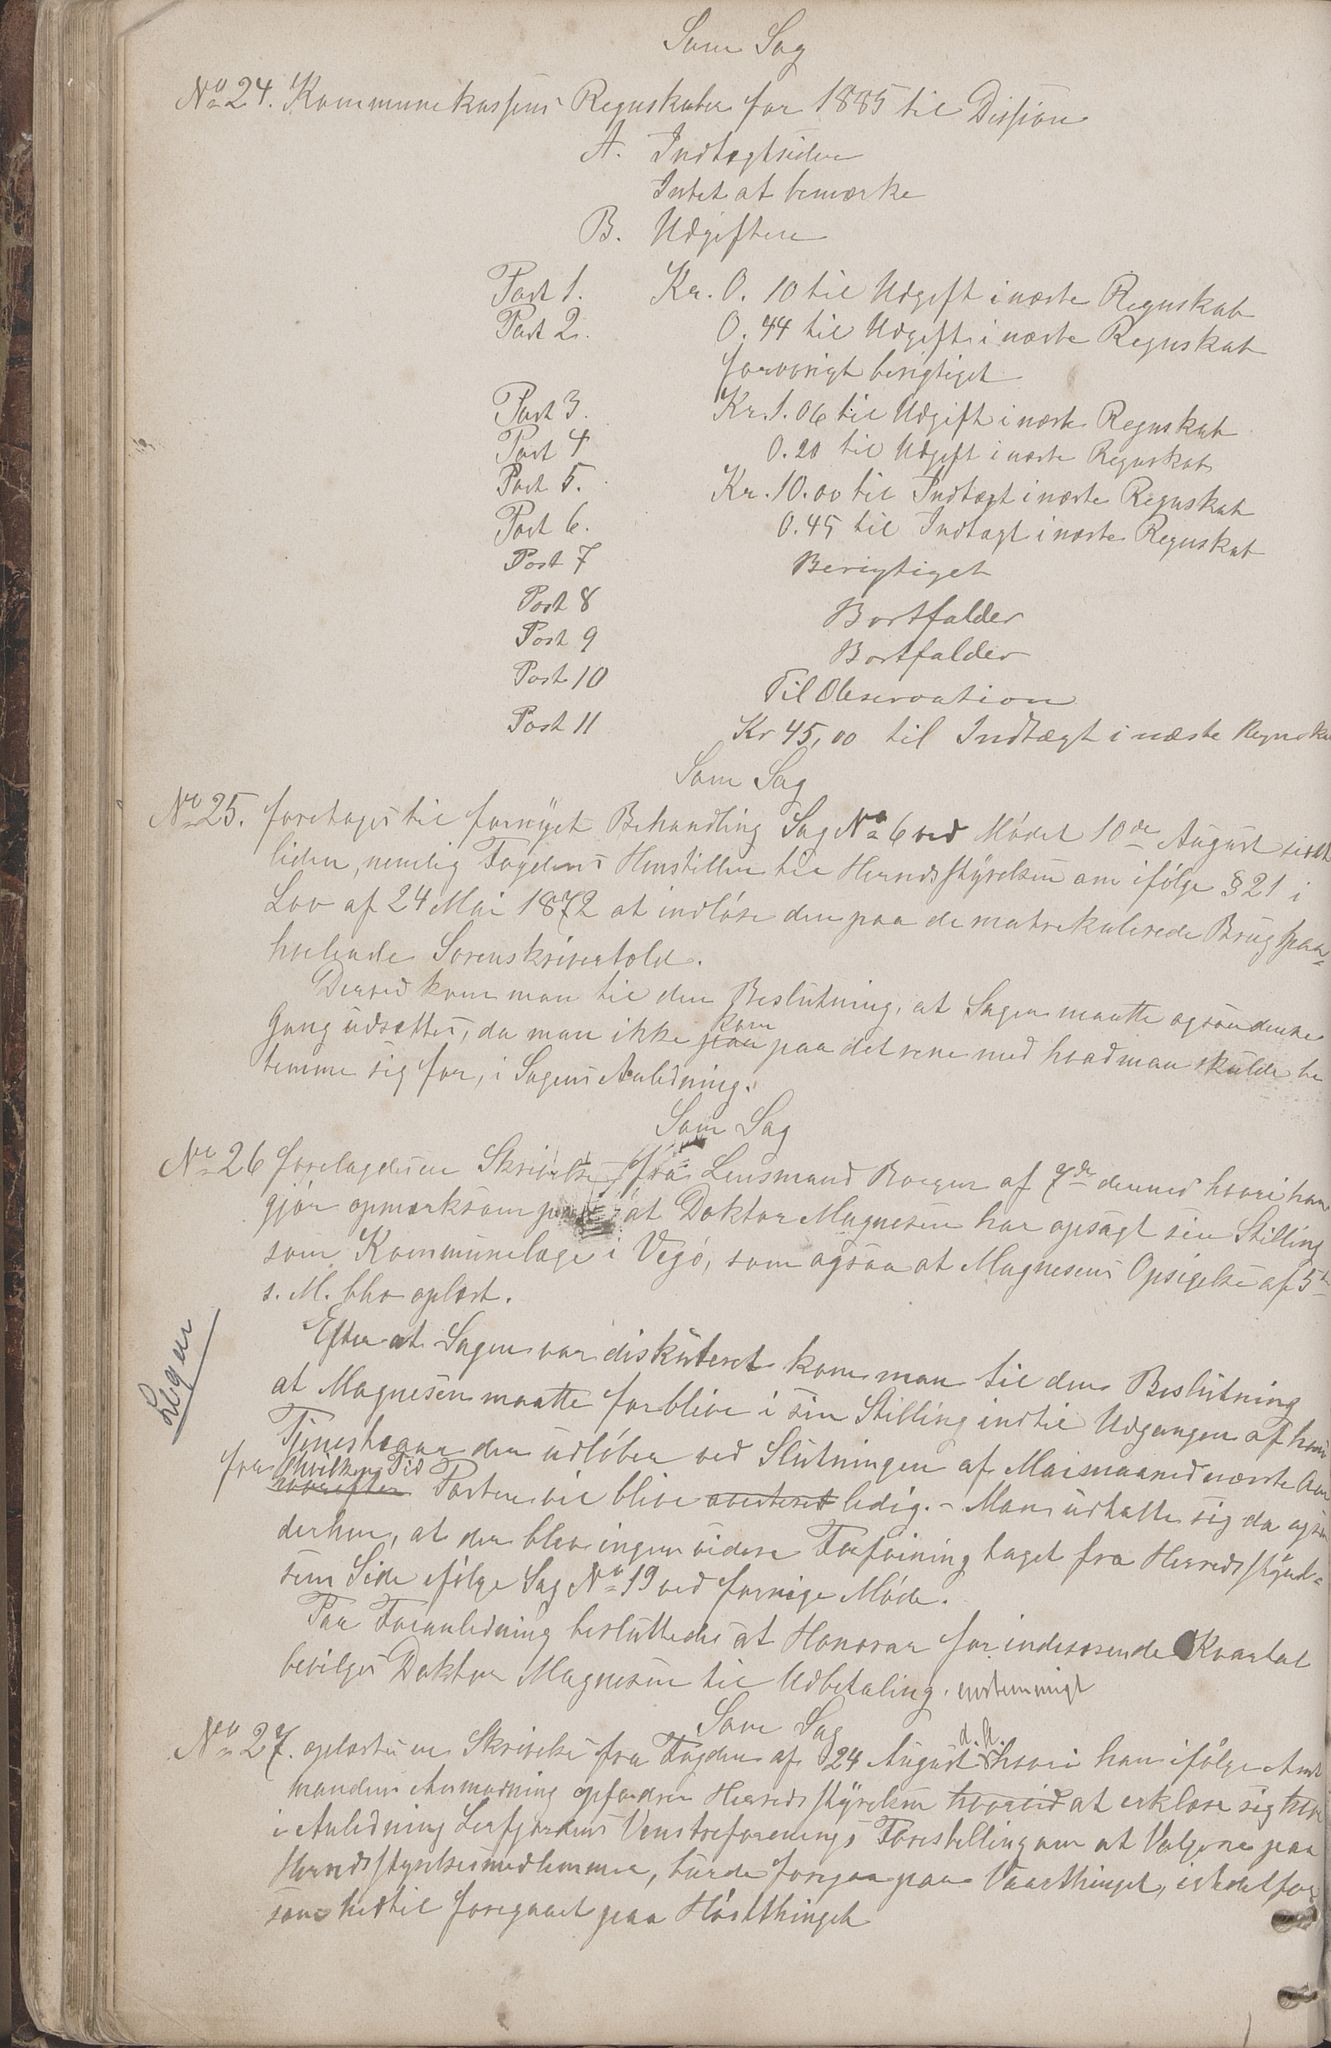 Som Sag
No 24. Kommunekassens Regnskaber for 1885 til Dission
A. Indtægtsiden
Intet at bemærke
B. Udgiften
Post 1. Kr. 0. 10 til Udgift i næste Regnskab
Post 2. 0. 44 til Udgift i næste Regnskab
forøvrigt berigtiget
Post 3. Kr. 1. 06 til Udgift i næste Regnskab
Post 4 0. 20 til Udgift i næste Regnskab
Post 5. Kr. 10. 00 til Indtægt i næste Regnskab
Post 6. 0. 45 til Indtægt i næste Regnskab
Post 7 Berigtiget
Post 8 Bortfalder
Post 9 Bortfalder
Post 10 Til Observation
Post 11 Kr 45,00 til Indtægt i næste Regnska
Som Sag
No 25. foretoges til fornyet Behandling Sag No 6 ved Mødet 10de August sidst
liden, nemlig Fogdens Henstillen til Herredsstyrelsen om ifølge § 21 i
Lov af 24 Mai 1872 at indløse den paa de matrekulerede Brug paa=
hvilende Sorenskrivertold.
Derved kom man til den Beslutning, at Sagen maatte ogsaa denne
Gang udsættes, da man ikke kom paa det rene med hvad man skulde be
temme sig for, i Sagens Anledning.
Som Sag
No 26 forelagdes en Skrivelse fra Lensmand af 7de dennes hvori han
gjør opmærksom paa at Doktor Magnesen har opsagt sin Stilling
som Kommunelæge i Vegø, som ogsaa at Magnesens Opsigelse af 5te
s. M. blev oplæst.
Efter at Sagen var diskuteret kom man til den Beslutning
at Magnesen maatte forblive i sin Stilling indtil Udgangen af hans
Tjenesteaar der udløber ved Slutningen af Maimaaned næste Aar
for hvilken Tid Posten vil blive ledig. - Man udtalte sig da ogsaa
derhen, at der blev ingen videre Forføining taget fra Herredsstyrel=
sens Side ifølge Sag No 19 ved forrige Møde.
Paa Foranledning besluttedes at Honorar for indeværende Kvartal
bevilges Doktor Magnesen til Udbetaling. enstemmigt
Lægen
Som Sag
No 27. oplæstes en Skrivelse fra Fogden af 24 August d. A. hvori han ifølge Amt
mandens Anmodning opfordrer Herredsstyrelsen hvorvid at erklære sig
i Anledning Leirfjordens Venstreforenings Forestilling om at Valgene paa
Herredsstyrelsesmedlemmer, burde foregaa paa Vaarthinget, istedetfor
som hidtil foregaaet paa Høstthinget